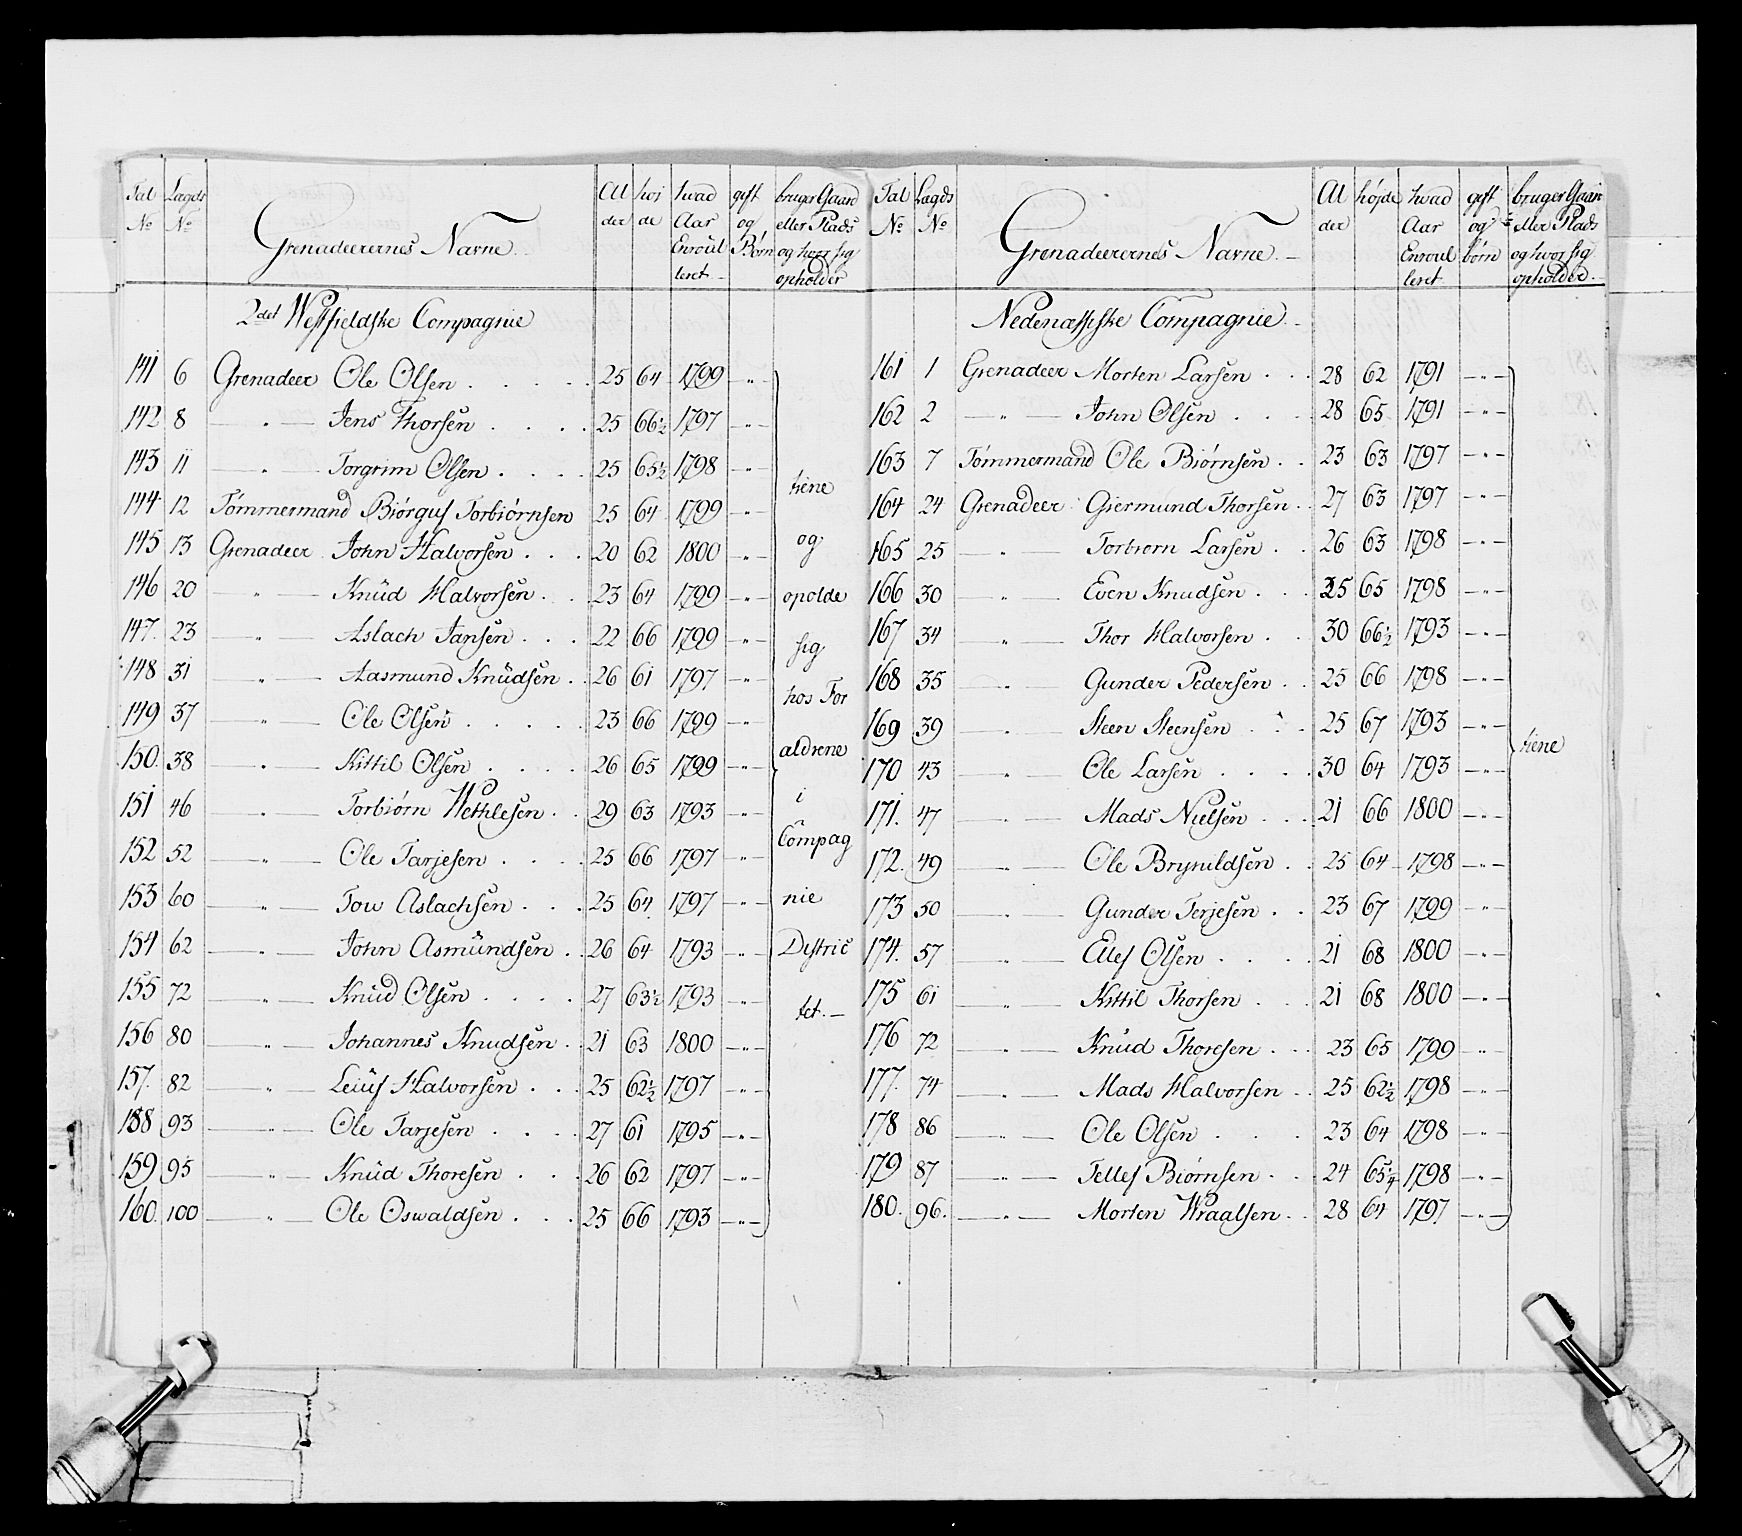 Tal No | Lægds No | Grenadeerernes Navne. | Al der | høi de | hvad Aar Enroul leret | gift og Børn | bruger Gaard eller Plads og hvor sig opholder
2det Westfieldske Compagnie
141 6 Grenadeer Ole Olsen . . . . . 25 64 1799 —"—
142 8 —"— Jens Thorsen . . . . 25 66½ 1797 —"—
143 11 —"— Torgrim Olsen . . . . 25 65½ 1798 —"—
144 12 Tømmermand Biørguf Torbiørnsen 25 64 1799 —"—
145 13 Grenadeer John Halvorsen . . . 20 62 1800 —"—
146 20 —"— Knüd Halvorsen . . 23 64 1799 —"—
147. 23 —"— Aslach Jansen . . . 22 66 1799 —"—
148 31 —"— Aasmund Knüdsen . . 26 61 1797 —"—
149 37 —"— Ole Olsen . . . . . 23 66 1799 —"—
150. 38 —"— Kittil Olsen . . . . 26 65 1799 —"—
151 46 —"— Torbiørn Wethlesen . . 29 63 1793 —"—
152 52 —"— Ole Tarjesen . . . . 25 66 1797 —"—
153 60 —"— Tow Aslachsen . . . 25 64 1797 —"—
154 62 —"— John Asmündsen . . 26 64 1793 —"—
155 72 —"— Knüd Olsen . . . . 27 63½ 1793 —"—
156 80 —"— Johannes Knudsen . . 21 63 1800 —"—
157. 82 —"— Leiüf Halvorsen . . . 25 62½ 1797 —"—
158 93 —"— Ole Tarjesen . . . . 27 61 1795 —"—
159 95 —"— Knüd Thoresen . . . 26 62 1797 —"—
160. 100 —"— Ole Oswaldsen . . . 25 66 1793 —"—
tiene
og
opolde
sig
hos For
aldrene
i
Compag
nie
Distric
tet. —
Tal No | Lægds No | Grenadeerernes Navne. — | Al der | højde | hvad Aar Enroul leret | gift og børn | bruger Gaard eller Plads og hvor sig opholder.
Nedenæsiske Compagnie. —
161 1 Grenadeer Morten Larsen . . . 28 62 1791 —"—
162 2 —"— John Olsen . . . . 28 65 1791 —"—
163 7 Tømmermand Ole Biørnsen . . 23 63 1797 —"—
164 24 Grenadeer Giermund Thorsen . . 27 63 1797 —"—
165 25 —"— Torbiorn Larsen . . 26 63 1798 —"—
166 30 —"— Even Knudsen . . . 25 65 1798 —"—
167 34 —"— Thor Halvorsen . . 30 66½ 1793 —"—
168 35 —"— Gunder Pedersen . . 25 66 1798 —"—
169 39 —"— Steen Steensen . . . 25 67 1793 —"—
170 43 —"— Ole Larsen . . . . 30 64 1793 —"—
171. 47 —"— Mads Nielsen . . . 21 66 1800 —"—
172. 49 —"— Ole Brynildsen . . 25 64 1798 —"—
173 50 —"— Gunder Terjesen . . 23 67 1799 —"—
174. 57 —"— Ellef Olsen . . . . 21 68 1800 —"—
175 61 —"— Kittil Thorsen . . . 21 68 1800 —"—
176 72 —"— Knüd Thoresen . . . 23 65 1799 —"—
177. 74 —"— Mads Halvorsen . . 25 62½ 1798 —"—
178 86 —"— Ole Olsen . . . 23 64 1798 —"—
179 87 —"— Tellef Biørnsen . . 24 65¼ 1798 —"—
180. 96. —"— Morten Wraalsen . . 28 64 1797 —"—
tiene